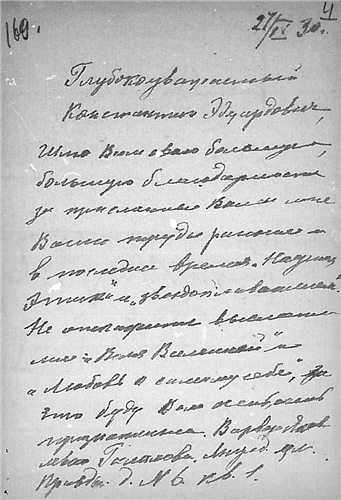 160.
4
27/IX 30 г.
Глубокоуважаемый
Константин Эдуардович,
Шлю Вам свою большую,
большую благодарность
за присланные Вами мне
Ваши труды раньше и
в последнее время „Научная
Этика“ и „Звездоплавателям“.
Не откажите выслать
мне „Воля Вселенной“ и
„Любовь к самому себе“, за
что буду Вам
признательна. Варвара
д. № 6 кв. 1.